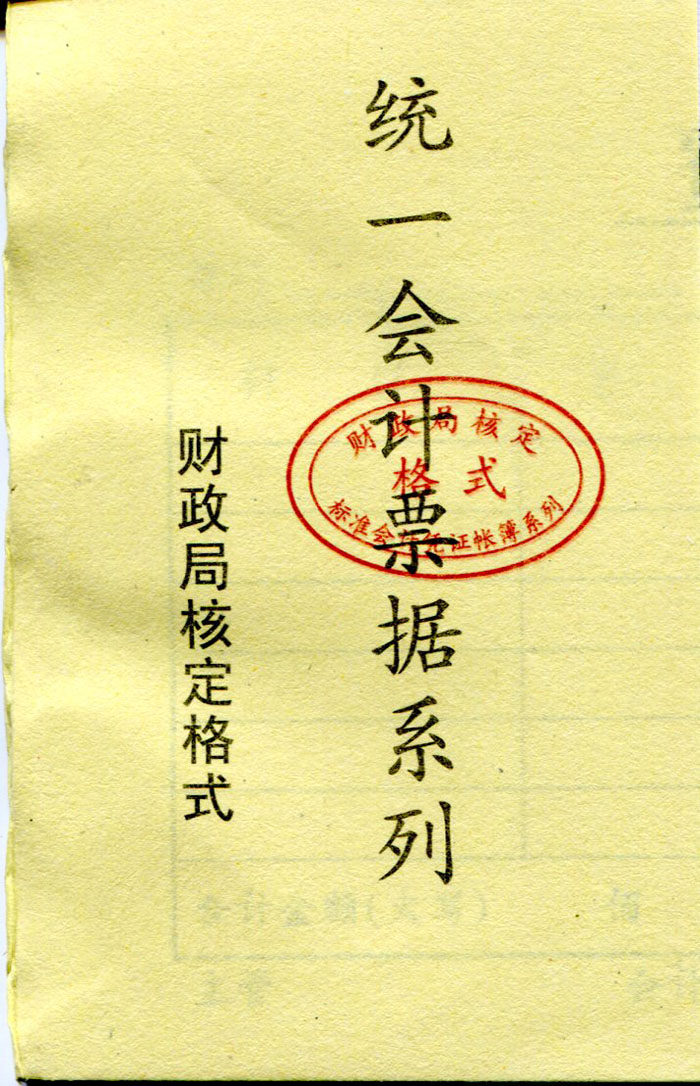 统一会计票据系列
财政局核定格式
财政局核定
格式
标准会计凭证帐簿系列
合计金额(大写) 佰
主管